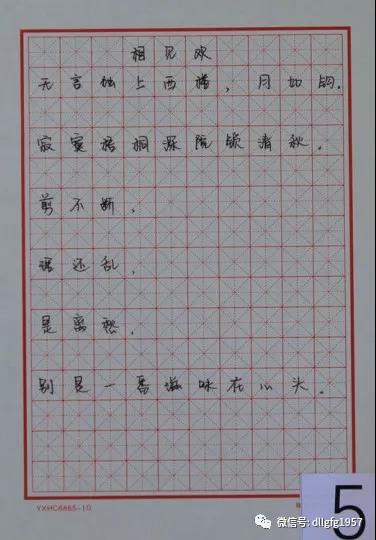 相见欢
无言独上西楼，月如钩.
寂寞梧桐深院锁清秋.
剪不断，
理还乱，
是离愁.
别是一番滋味在心头.
YXHC6885-10
5
微信号: dllgfg1957